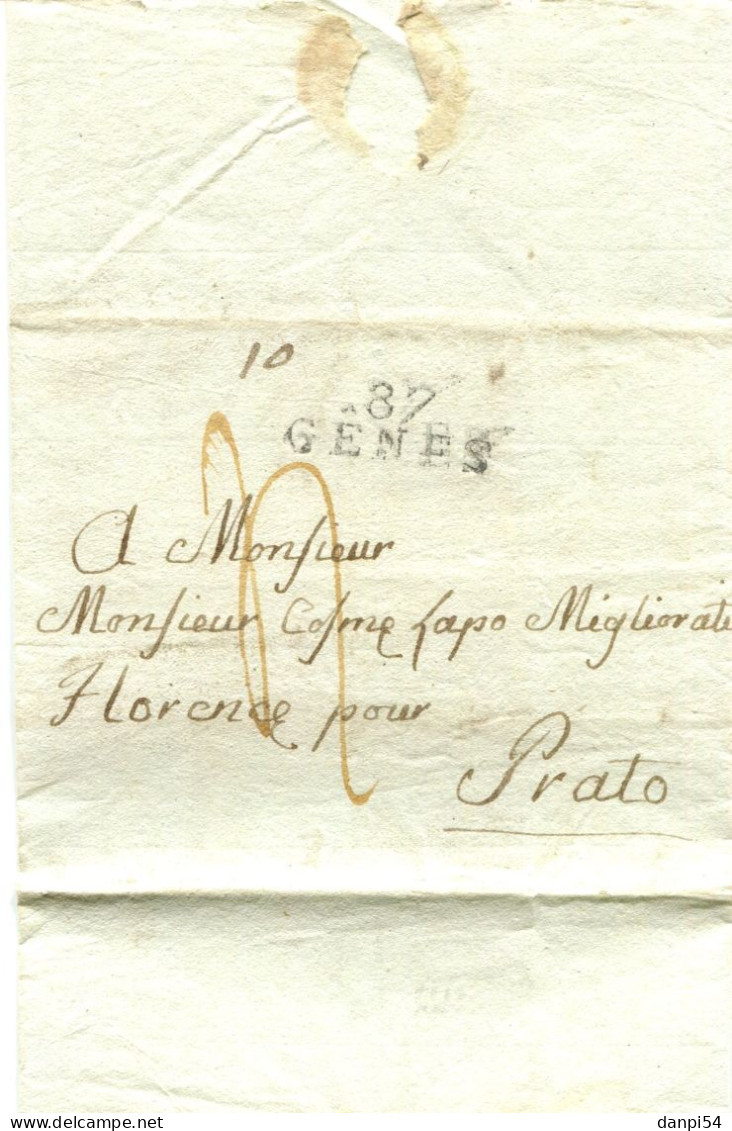 10
87
GÊNES
A Monsieur
Monsieur Cosme Lapo Migliorati
Florence pour
Prato
danpi54